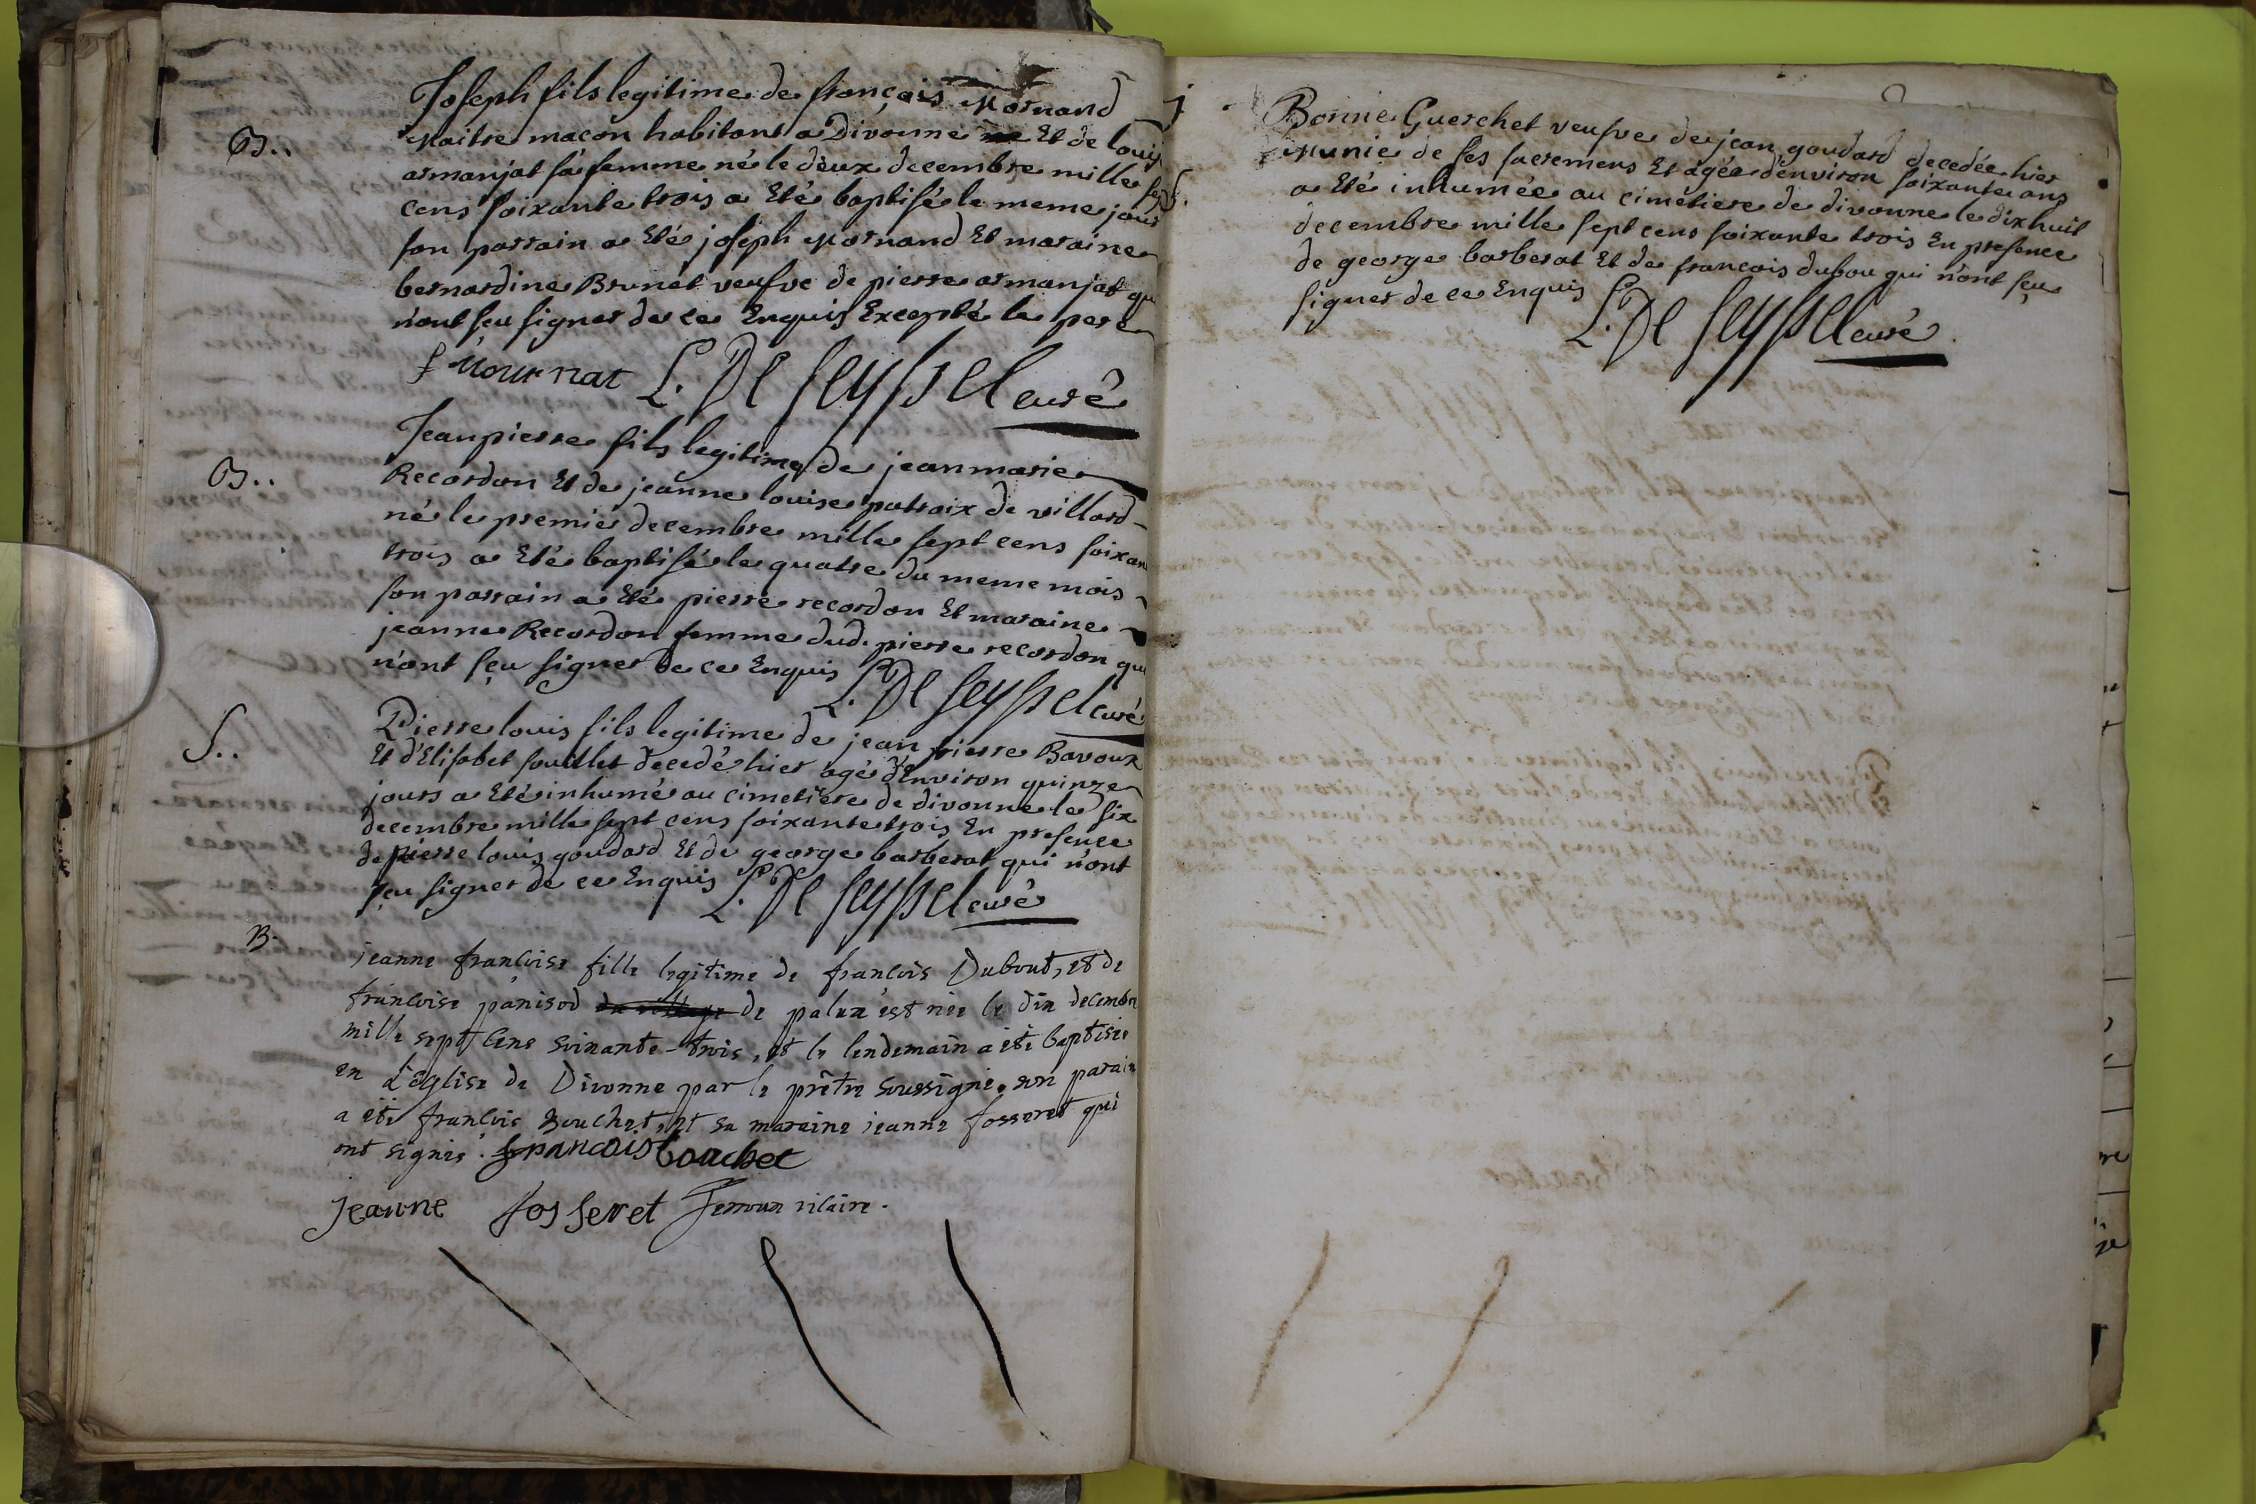 B..
Joseph fils legitime de françois Mornand
Maitre macon habitant a Divonne Et de louise
armanjat sa femme né le deux decembre mille sept
cens soixante trois a Eté baptisé le meme jour
son parrain a Eté joseph Mornand Et maraine
bernardine Brunet veufve de pierre armanjat qui
n'ont seu signer de ce Enquis Excepté le pere
f Mournat L. De Seyssel curé
B..
Jeanpierre fils legitime de jeanmarie
Recordon Et de jeanne louise patraix de villard
né le premier decembre mille sept cens soixante
trois a Eté baptisé le quatre du meme mois
son parrain a Eté pierre recordon Et maraine
jeanne Recordon femme dud. pierre recordon qui
n'ont sçu signer de ce Enquis L. De Seyssel curé
S..
Pierre louis fils legitime de jean pierre Bavoux
Et d'Elisabet fouillet decedé hier agé d'Environ quinze
jours a Eté inhumé au cimetiere de divonne le six
decembre mille sept cens soixante trois En presence
de pierre louis goudard Et de george barberat qui n'ont
sçu signer de ce Enquis L. De Seyssel curé
B.
jeanne françoise fille legitime de françois Dubout, et de
françoise panisod de palex est née le dix decembre
mille sept cens soixante-trois, et le lendemain a été baptisée
en l'église de Divonne par le prêtre soussigné. son parain
a été françois Bouchet, et sa maraine jeanne fosseret qui
ont signés. francois bouchet
jeanne fosseret vicaire.
S.
Bonne Guerchet veufve de jean goudard decedée hier
Munie de ses sacremens Et agée d'environ soixante ans
a Eté inhumée au cimetiere de divonne le dixhuit
decembre mille sept cens soixante trois En presence
de george barberat Et de francois dubou qui n'ont sçu
signer de ce Enquis L. De Seyssel curé.